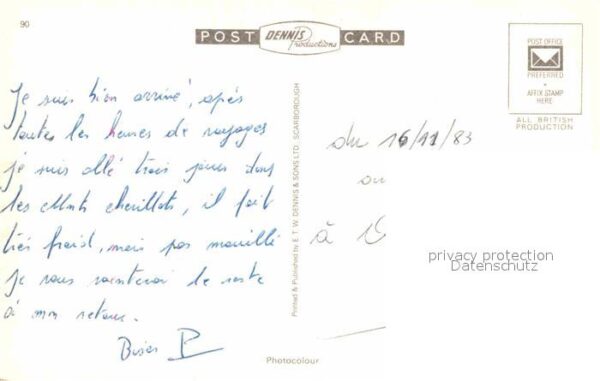 90
POST DENNIS Productions CARD
POST OFFICE
PREFERRED
AFFIX STAMP
HERE
ALL BRITISH
PRODUCTION
Je suis bien arrivé, après
toutes les heures de voyages
je suis allé trois jours dans
les Monts, il fait
très froid, mais pas mouillé
Je vous raconterai le reste
à mon retour.
Bises P
Printed & Published by E.T.W. DENNIS & SONS LTD. SCARBOROUGH
du 16/11/83
au
à
privacy protection
Datenschutz
Photocolour